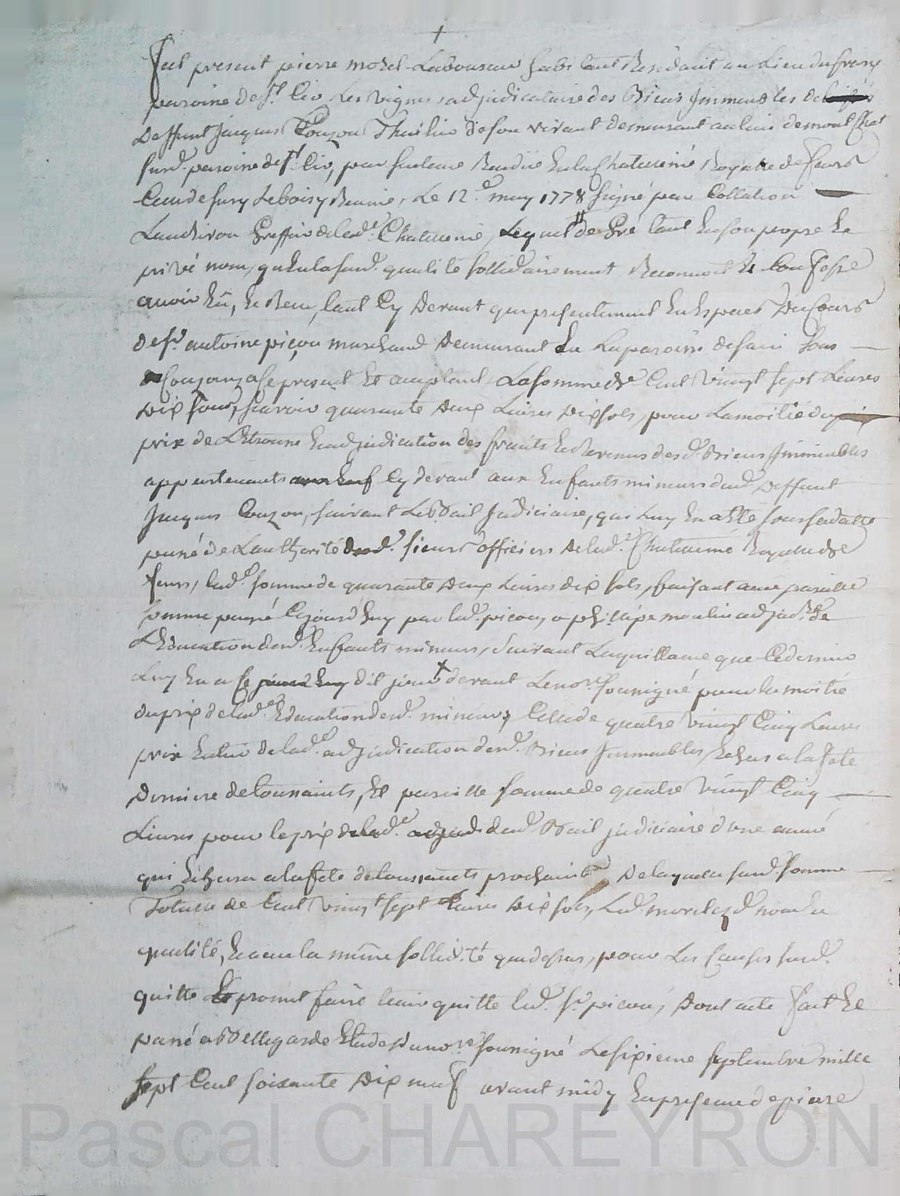 +
Fut present pierre morel Laboureur habitant Residant au Lieu du
paroisse de St Cir Les vignes adjudicataire des Biens Immeubles
Deffunt Jacques Couzon Thuilier de son vivant demurant au lieu de
surd. paroisse de St Cir, par sentence Rendüe En la Chatelenie Royalle de feurs
Le 12e may 1778 signé par Collation
Greffier de lad.e Chatelenie, Lequel de Gré tant En son propre Et
privé nom, qu'En la surd. qualité sollidairement Reconnoit Et Confesse
avoir Eû, Et Receu, tant Cy Devant que presentement En Espèces Du Cours
de sr antoine picon marchand Demeurant En La paroisse de
present Et acceptant La somme de Cent Vingt sept Livres
Dix sous, scavoir quarante Deux Livres Dix sols, pour La moitié du
prix de L'Etrousse Et adjudication des fruits Et Revenus desd. Biens Immeubles
appartenants Cy devant aux Enfants mineurs dud. Deffunt
Jacques Couzon, suivant Le Bail Judiciaire, qui Luy En a Eté
passé de L'authorité sieurs officiers De lad.e Chatelenie Royalle de
feurs, lad. somme de quarante Deux Livres dix sols, faisant avec pareille
somme payé Cejourd'huy par led. picon, a philippe moulin adjud.re de
L'Education desd. Enfants mineurs, suivant La quittance que Ce dernier
Luy En a dit jour + devant Le nore soussigné pour La moitié
du prix de lad.e Education desd. mineurs, Celle de quatre Vingt Cinq Livres
prix Entier de lad.e adjudication desd. Biens Immeubles, Echus a la fete
Derniere de toussaints, Et pareille somme de quatre Vingt Cinq
Livres pour le prix dud. Bail judiciaire d'une année
qui Echerra a la fete de toussaints prochaine De laquelle surd. somme
Totalle de Cent Vingt sept Livres Dix sols, Led. morel
qualité, Et avec la même sollid.té que dessus, pour Les Causes surd.
quitte Et promet faire tenir quitte led. sr picon, Dont acte fait Et
passé a Bellegarde Etude Du nore soussigné Le sixieme septembre mille
sept Cent soixante Dix neuf avant midy En presence de pierre
Pascal CHAREYRON